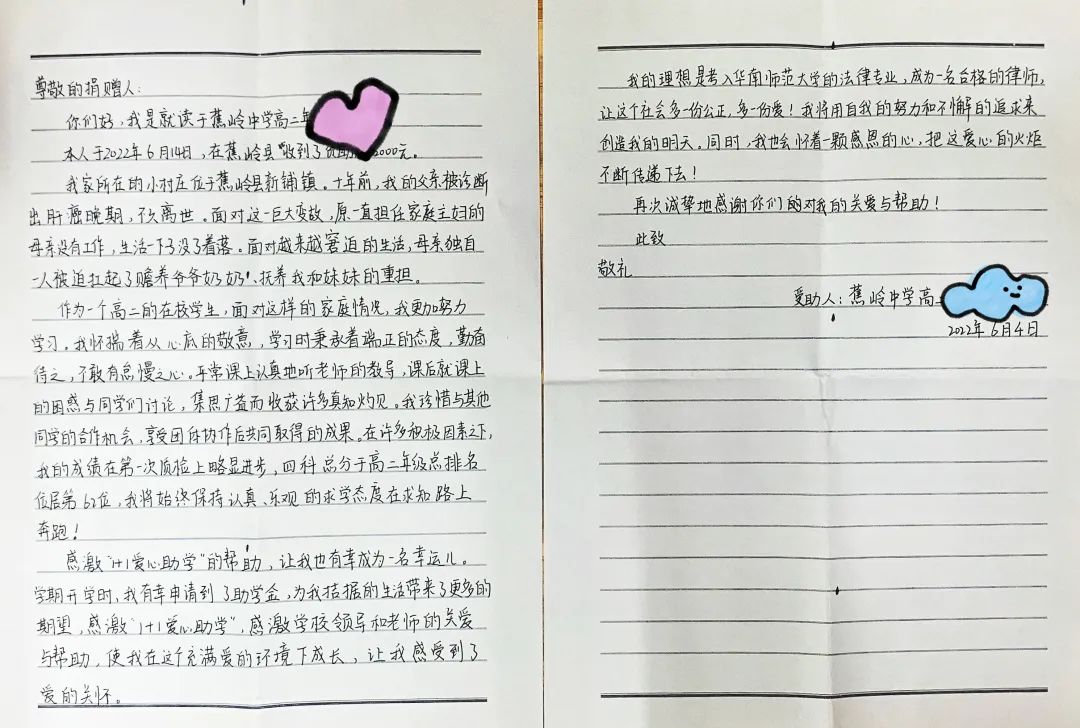 尊敬的捐赠人：
你们好，我是就读于蕉岭中学高二年
本人于2022年6月14日，在蕉岭县"收到了资助 2000元。
我家所在的小村庄位于蕉岭县新铺镇。十年前，我的父亲被诊断
出肝癌晚期，不久离世。面对这一巨大变故，原一直担任家庭主妇的
母亲没有工作，生活一下子没了着落。面对越来越窘迫的生活，母亲独自
一人被迫扛起了赡养爷爷奶奶、抚养我和妹妹的重担。
作为一个高二的在校学生，面对这样的家庭情况，我更加努力
学习。我怀揣着从心底的敬意，学习时秉承着端正的态度，勤奋
待之，不敢有怠慢之心。平常课上认真地听老师的教导，课后就课上
的困惑与同学们讨论，集思广益而收获许多真知灼见。我珍惜与其他
同学的合作机会，享受团体协作后共同取得的成果。在许多积极因素之下，
我的成绩在第一次质检上略显进步，四科总分于高二年级总排名
位居第62位，我将始终保持认真、乐观的求学态度在求知路上
奔跑！
感激"1+1爱心助学"的帮助，让我也有幸成为一名幸运儿。
学期开学时，我有幸申请到了助学金，为我拮据的生活带来了更多的
期望，感激"1+1爱心助学"，感激学校领导和老师的关爱
与帮助，使我在这个充满爱的环境下成长，让我感受到了
爱的关怀。
我的理想是考入华南师范大学的法律专业，成为一名合格的律师，
让这个社会多一份公正，多一份爱！我将用自我的努力和不懈的追求来
创造我的明天。同时，我也会怀着一颗感恩的心，把这爱心的火炬
不断传递下去！
再次诚挚地感谢你们的对我的关爱与帮助！
此致
敬礼
受助人：蕉岭中学高
2022年6月4日